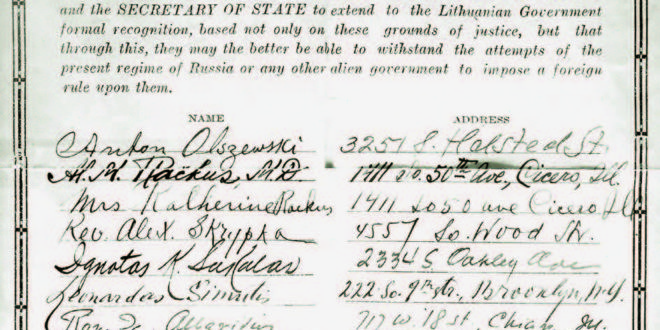 and the SECRETARY OF STATE to extend to the Lithuanian Government
formal recognition, based not only on these grounds of justice, but that
through this, they may the better be able to withstand the attempts of the
present regime of Russia or any other alien government to impose a foreign
rule upon them.
NAME ADDRESS
Anton Olszewski 3251 S. Halsted St.
A. M. Rackus, M.D. 1411 So. 50th Ave, Cicero, Ill.
Mrs Katherine Rackus 1411 So 50 ave Cicero Ill
Rev. Alex. Skrypka 4557 So. Wood Str.
Ignotas K. Sakalas 2334 S. Oakley Ave
Leonardas Simutis 222 So. 9th str., Brooklyn, N.Y.
717 W. 18 St.,